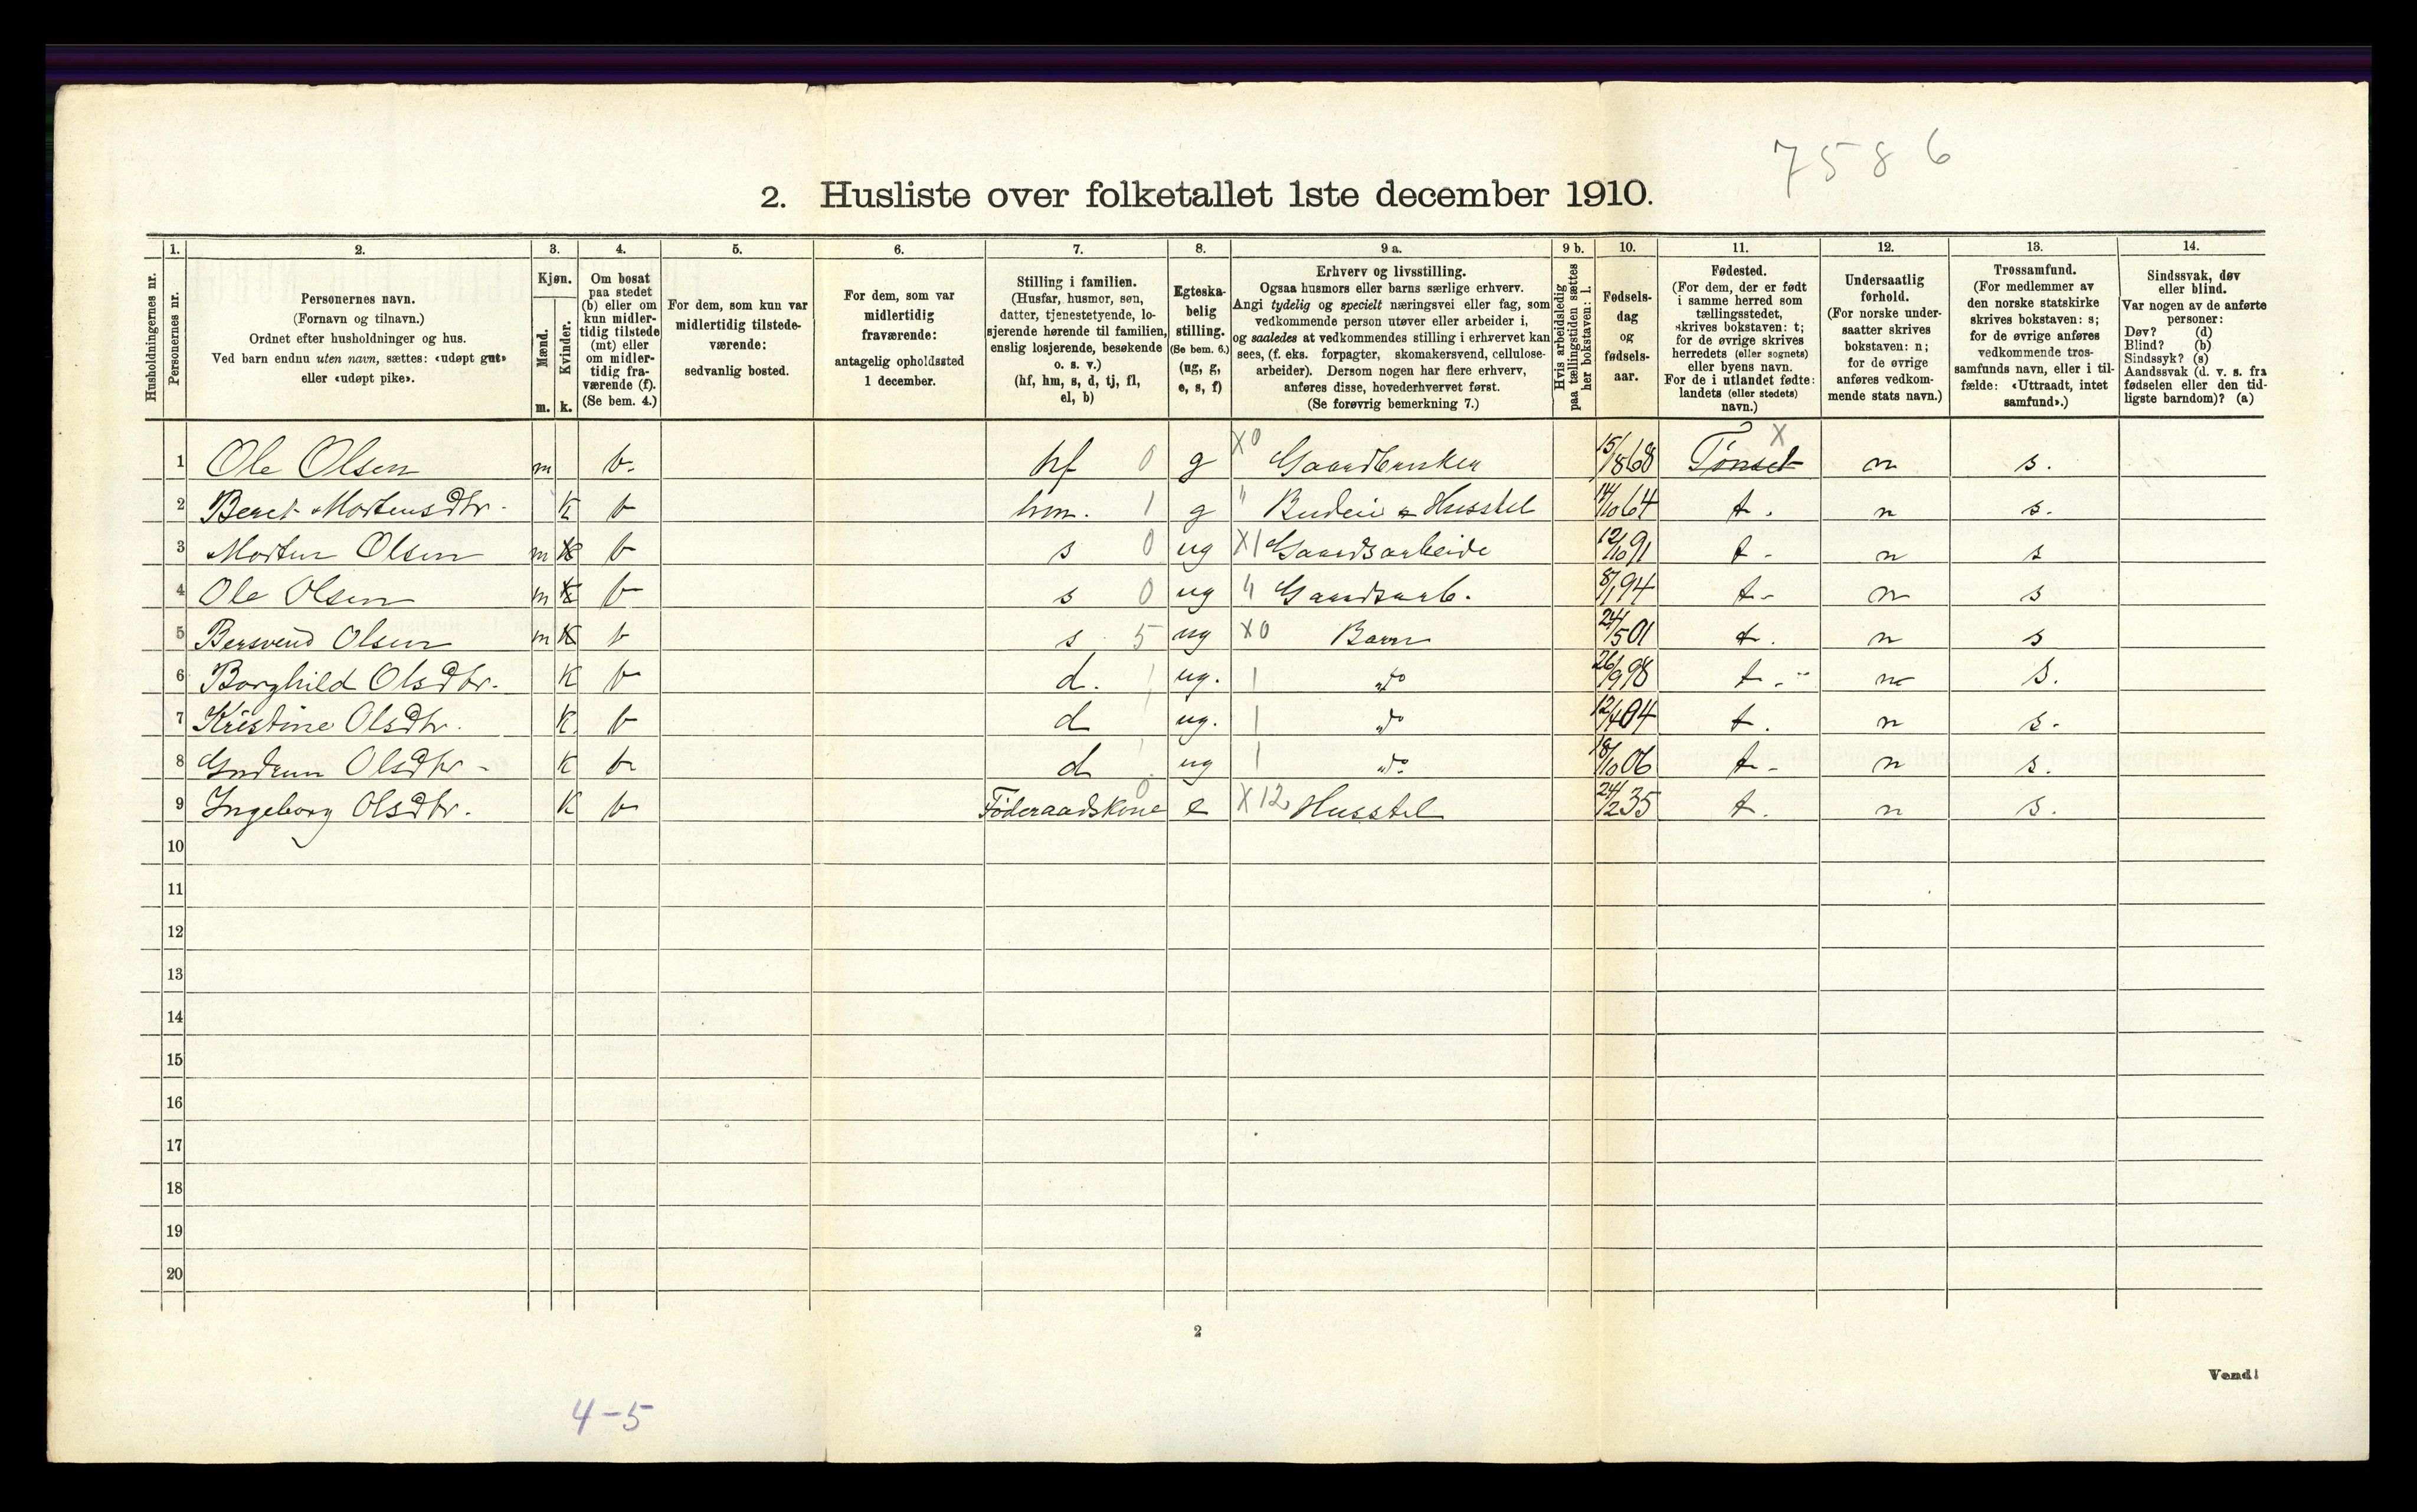 7586
2. Husliste over folketallet 1ste december 1910.
Husholdningernes nr.
1.
Personernes nr.
2.
Personernes navn.
(Fornavn og tilnavn.)
Ordnet efter husholdninger og hus.
Ved barn endnu uten navn, sættes: «udøpt gut»
eller «udøpt pike».
3.
Kjøn.
Mænd.
Kvinder.
m. k.
4.
Om bosat
paa stedet
(b) eller om
kun midler-
tidig tilstede
(mt) eller
om midler-
tidig fra-
værende (f).
(Se bem. 4.)
5.
For dem, som kun var
midlertidig tilstede-
værende:
sedvanlig bosted.
6.
For dem, som var
midlertidig
fraværende:
antagelig opholdssted
1 december.
7.
Stilling i familien.
(Husfar, husmor, søn,
datter, tjenestetyende, lo-
sjerende hørende til familien,
enslig losjerende, besøkende
o. s. v.)
(hf, hm, s, d, tj, fl,
el, b)
8.
Egteska-
belig
stilling.
(Se bem. 6.)
(ug, g,
e, s, f)
9 a.
Erhverv og livsstilling.
Ogsaa husmors eller barns særlige erhverv.
Angi tydelig og specielt næringsvei eller fag, som
vedkommende person utøver eller arbeider i,
og saaledes at vedkommendes stilling i erhvervet kan
sees, (f. eks. forpagter, skomakersvend, cellulose-
arbeider). Dersom nogen har flere erhverv,
anføres disse, hovederhvervet først.
(Se forøvrig bemerkning 7.)
9 b.
Hvis arbeidsledig
paa tællingstiden sættes
her bokstaven: l.
10.
Fødsels-
dag
og
fødsels-
aar.
11.
Fødested.
(For dem, der er født
i samme herred som
tællingsstedet,
skrives bokstaven: t;
for de øvrige skrives
herredets (eller sognets)
eller byens navn.
For de i utlandet fødte:
landets (eller stedets)
navn.)
12.
Undersaatlig
forhold.
(For norske under-
saatter skrives
bokstaven: n;
for de øvrige
anføres vedkom-
mende stats navn.)
13.
Trossamfund.
(For medlemmer av
den norske statskirke
skrives bokstaven: s;
for de øvrige anføres
vedkommende tros-
samfunds navn, eller i til-
fælde: «Uttraadt, intet
samfund».)
14.
Sindssvak, døv
eller blind.
Var nogen av de anførte
personer:
Døv? (d)
Blind? (b)
Sindssyk? (s)
Aandssvak (d. v. s. fra
fødselen eller den tid-
ligste barndom)? (a)
1 Ole Olsen m b. hf 0 g X0 Gaardbruker 15/1 868 Tønset X n s.
2 Beret Mortensdtr. K b hm. 1 g " Budeie & Husstel 14/10 64 t. n s.
3 Morten Olsen m K b s 0 ug X1 Gaardsarbeide 12/10 91 t - n s
4 Ole Olsen m K b s 0 ug " Gaardsarb. 8/1 94 t - n s
5 Bersvend Olsen m K b s 5 ug X0 Barn 24/5 01 t. n s
6 Borghild Olsdtr. K b d. 1 ug. 1 "do 26/9 98 t. n s.
7 Kristine Olsdtr. K b d ug. 1 "do 12/4 04 t. n s.
8 Gudrun Olsdtr - K b d 1 ug 1 "do 18/10 06 t - n s.
9 Ingeborg Olsdtr. K b Føderaadskone 0 e X12 Husstel 24/2 35 t. n s.
10
11
12
13
14
15
16
17
18
19
20
2
Vend!
4-5